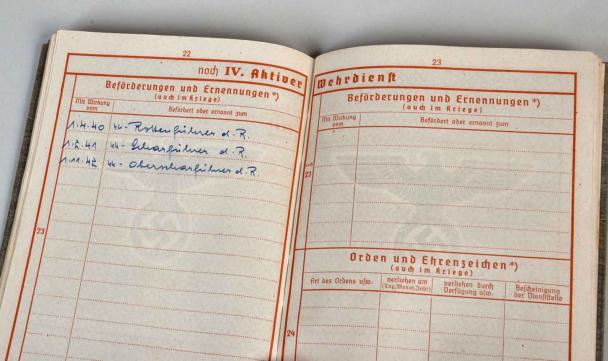 22
noch IV. Aktiver
Beförderungen und Ernennungen*)
(auch im Kriege)
Mit Wirkung vom
Befördert oder ernannt zum
1.4.40 SS-Rottenführer d. R.
1.2.41 SS-Scharführer d. R.
1.11.42 SS-Oberscharführer d. R.
23
23
Wehrdienst
Beförderungen und Ernennungen*)
(auch im Kriege)
Mit Wirkung vom
Befördert oder ernannt zum
23
Orden und Ehrenzeichen*)
(auch im Kriege)
Art des Ordens usw.
verliehen am (Tag, Monat, Jahr)
verliehen durch Verfügung usw.
Bescheinigung der Dienststelle
24